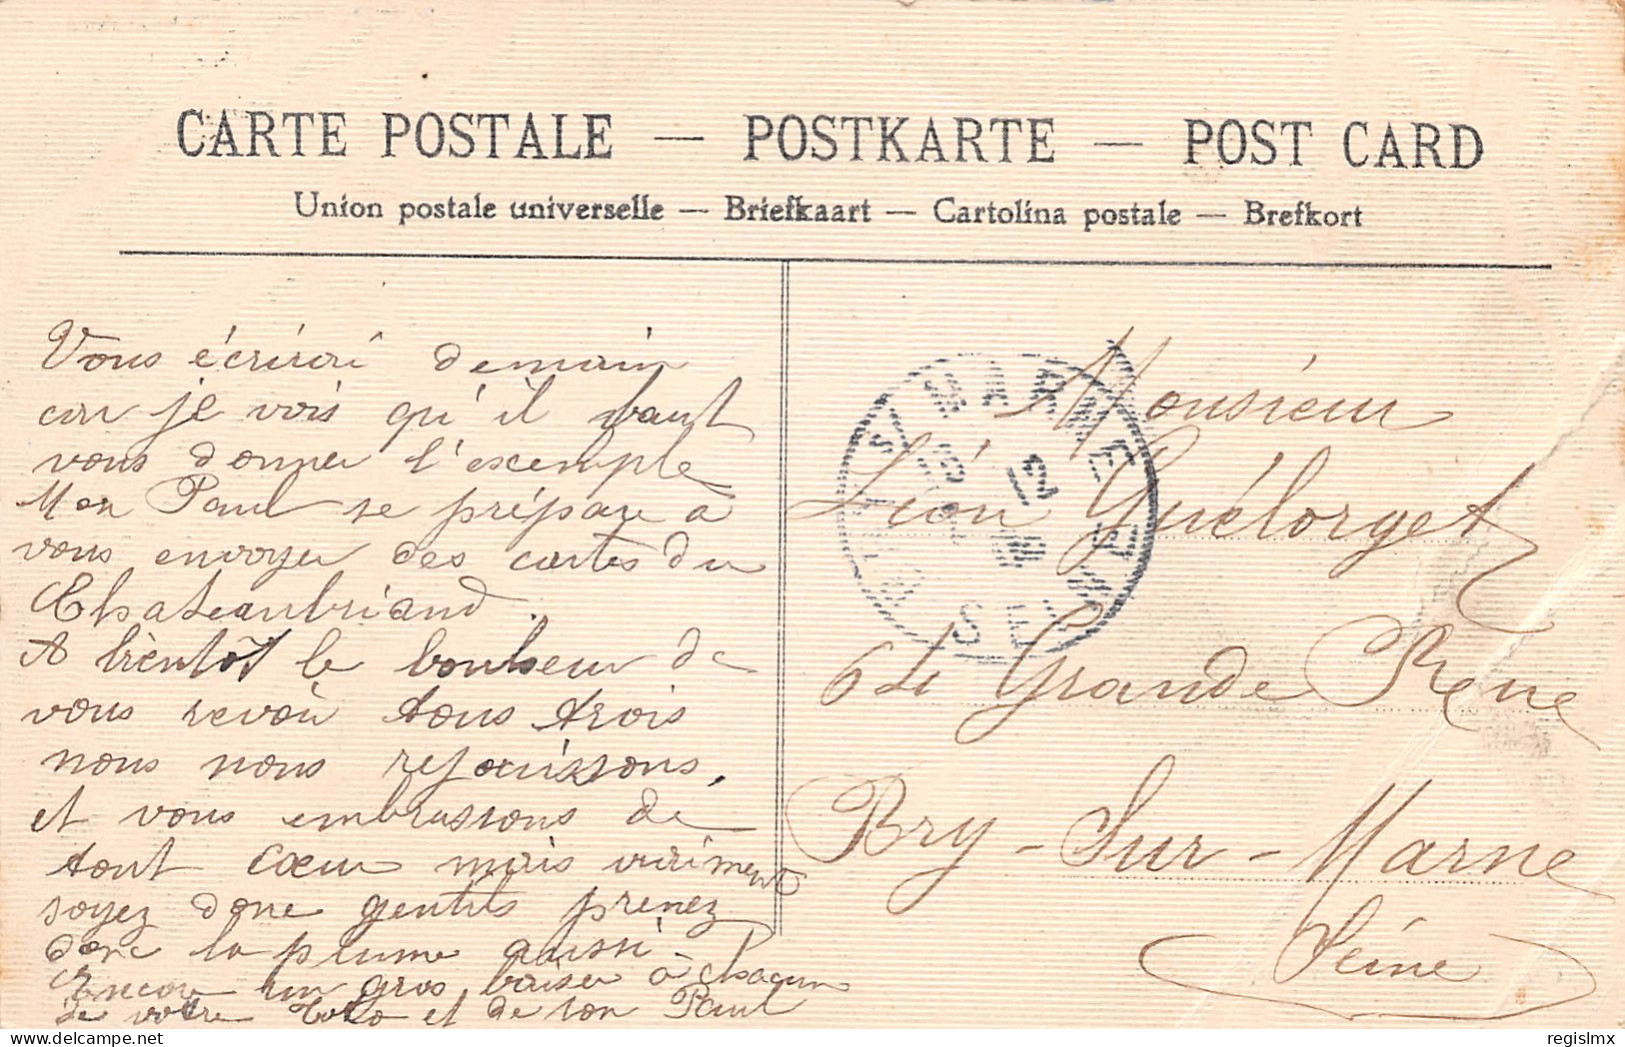 CARTE POSTALE — POSTKARTE — POST CARD
Union postale universelle — Briefkaart — Cartolina postale — Brefkort
Vous écrirai demain
car je vois qu'il vaut
vous donner l'exemple
Mon Paul se prépare à
vous envoyer des cartes du
Chateaubriand.
A bientôt le bonheur de
vous revoir tous trois
nous nous rejouissons,
et vous embrassons de
tout cœur mais vraiment
soyez donc gentils prenez
donc la plume aussi
Encore un gros baiser à chacun
de votre Toto et de son Paul
MARNE
12
SEINE
Monsieur
Léon Guélorget
64 Grande Rue
Bry-Sur-Marne
Seine
regislmx